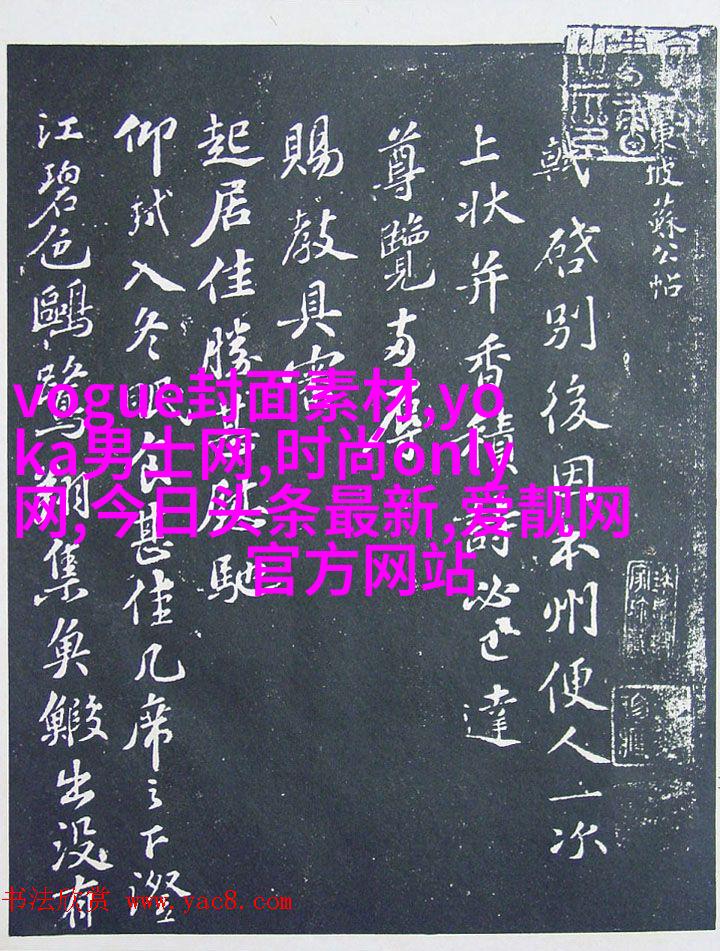 東坡蘇公帖
軾啓別後因本州便人一次
上狀并香積詩必已達
尊覽
賜教具審
起居佳勝
馳
仰軾入冬眠食甚佳几席之下澄
江碧色鷗鷺翔集魚鰕出没有
vogue封面素材,yo
ka男士网,时尚only
网,今日头条最新,爱靓网
官方网站
书法欣赏 www.yac8.com